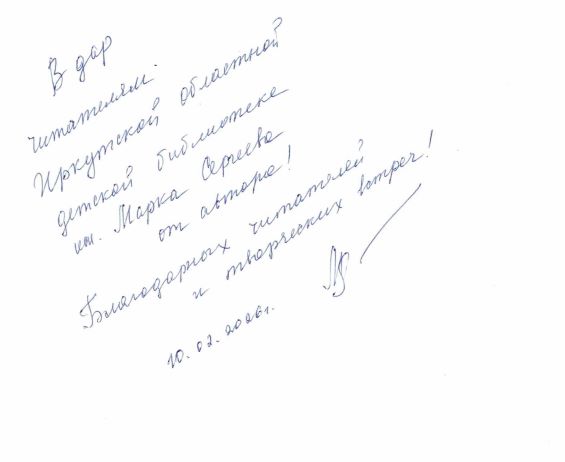 В дар
читателям
Иркутской областной
детской библиотеке
им. Марка Сергеева
от автора!
Благодарных читателей
и творческих встреч!
10.02.2026г.